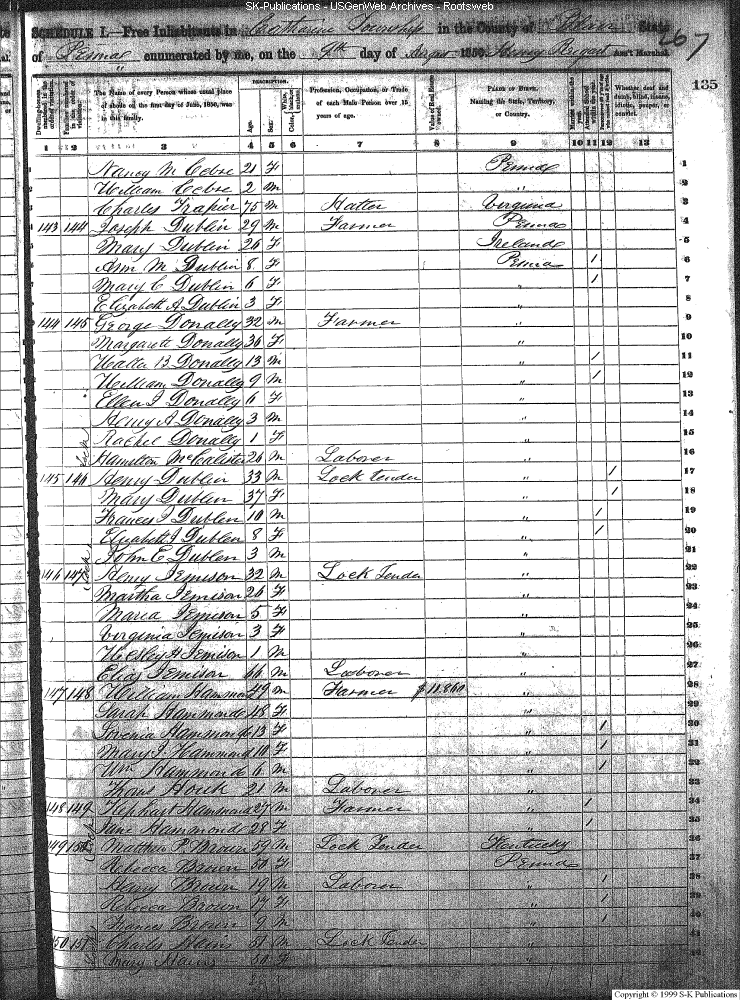 SK-Publications - USGenWeb Archives - Rootsweb
SCHEDULE I.—Free Inhabitants in Catharine Township in the County of Blair State
of Penna enumerated by me, on the 9th day of August 1850. Ass't Marshal.
67
135
DESCRIPTION.
The Name of every Person whose usual place of abode on the first day of June, 1850, was in this family.
Age.
Sex.
Profession, Occupation, or Trade of each Male Person over 15 years of age.
Value of Real Estate owned.
PLACE OF BIRTH.
Naming the State, Territory, or Country.
Whether deaf and dumb, blind, insane, idiotic, pauper, or convict.
1 2 3 4 5 6 7 8 9 10 11 12 13
Nancy M 21 F Penna 1
William 2 M " 2
Charles Frapier 75 M Hatter Virginia 3
143 144 Joseph Dublin 29 M Farmer Penna 4
Mary Dublin 26 F Ireland 5
Ann M Dublin 8 F Penna / 6
Mary C Dublin 6 F " / 7
Elizabeth A Dublin 3 F " 8
144 145 George Donally 32 M Farmer " 9
Margarett Donally 36 F " 10
Walter B Donally 13 M " / 11
William Donally 9 M " / 12
Ellen J Donally 6 F " 13
Henry A Donally 3 M " 14
Rachel Donally 1 F " 15
Hamilton McCalister 26 M Laborer " 16
145 146 Henry Dublin 33 M Lock tender " / 17
Mary Dublin 37 F " / 18
Frances J Dublin 10 M " / 19
Elizabeth J Dublin 8 F " / 20
John E Dublen 3 M " 21
146 147 Henry Jemison 32 M Lock Tender " 22
Martha Jemison 26 F " 23
Maria Jemison 5 F " 24
Virginia Jemison 3 F " 25
Wesley H Jemison 1 M " 26
Elias Jemison 66 M Laborer " 27
147 148 William Hammond 49 M Farmer $11,860 " 28
Sarah Hammonds 48 F " 29
Hammonds 13 F " / 30
Mary J Hammond 10 F " / 31
Wm Hammonds 6 M " / 32
Houck 21 M Laborer " 33
148 149 Kephart Hammond 27 M Farmer " / 34
Jane Hammonds 28 F " / 35
149 150 Matthew P Brown 59 M Lock Tender Kentucky 36
Rebecca Brown 50 F Penna 37
Harry Brown 19 M Laborer " / 38
Rebecca Brown 17 F " / 39
Frances Brown 9 M " / 40
150 151 Charles 51 M Lock Tender " 41
Mary 50 F " 42
Copyright © 1999 S-K Publications